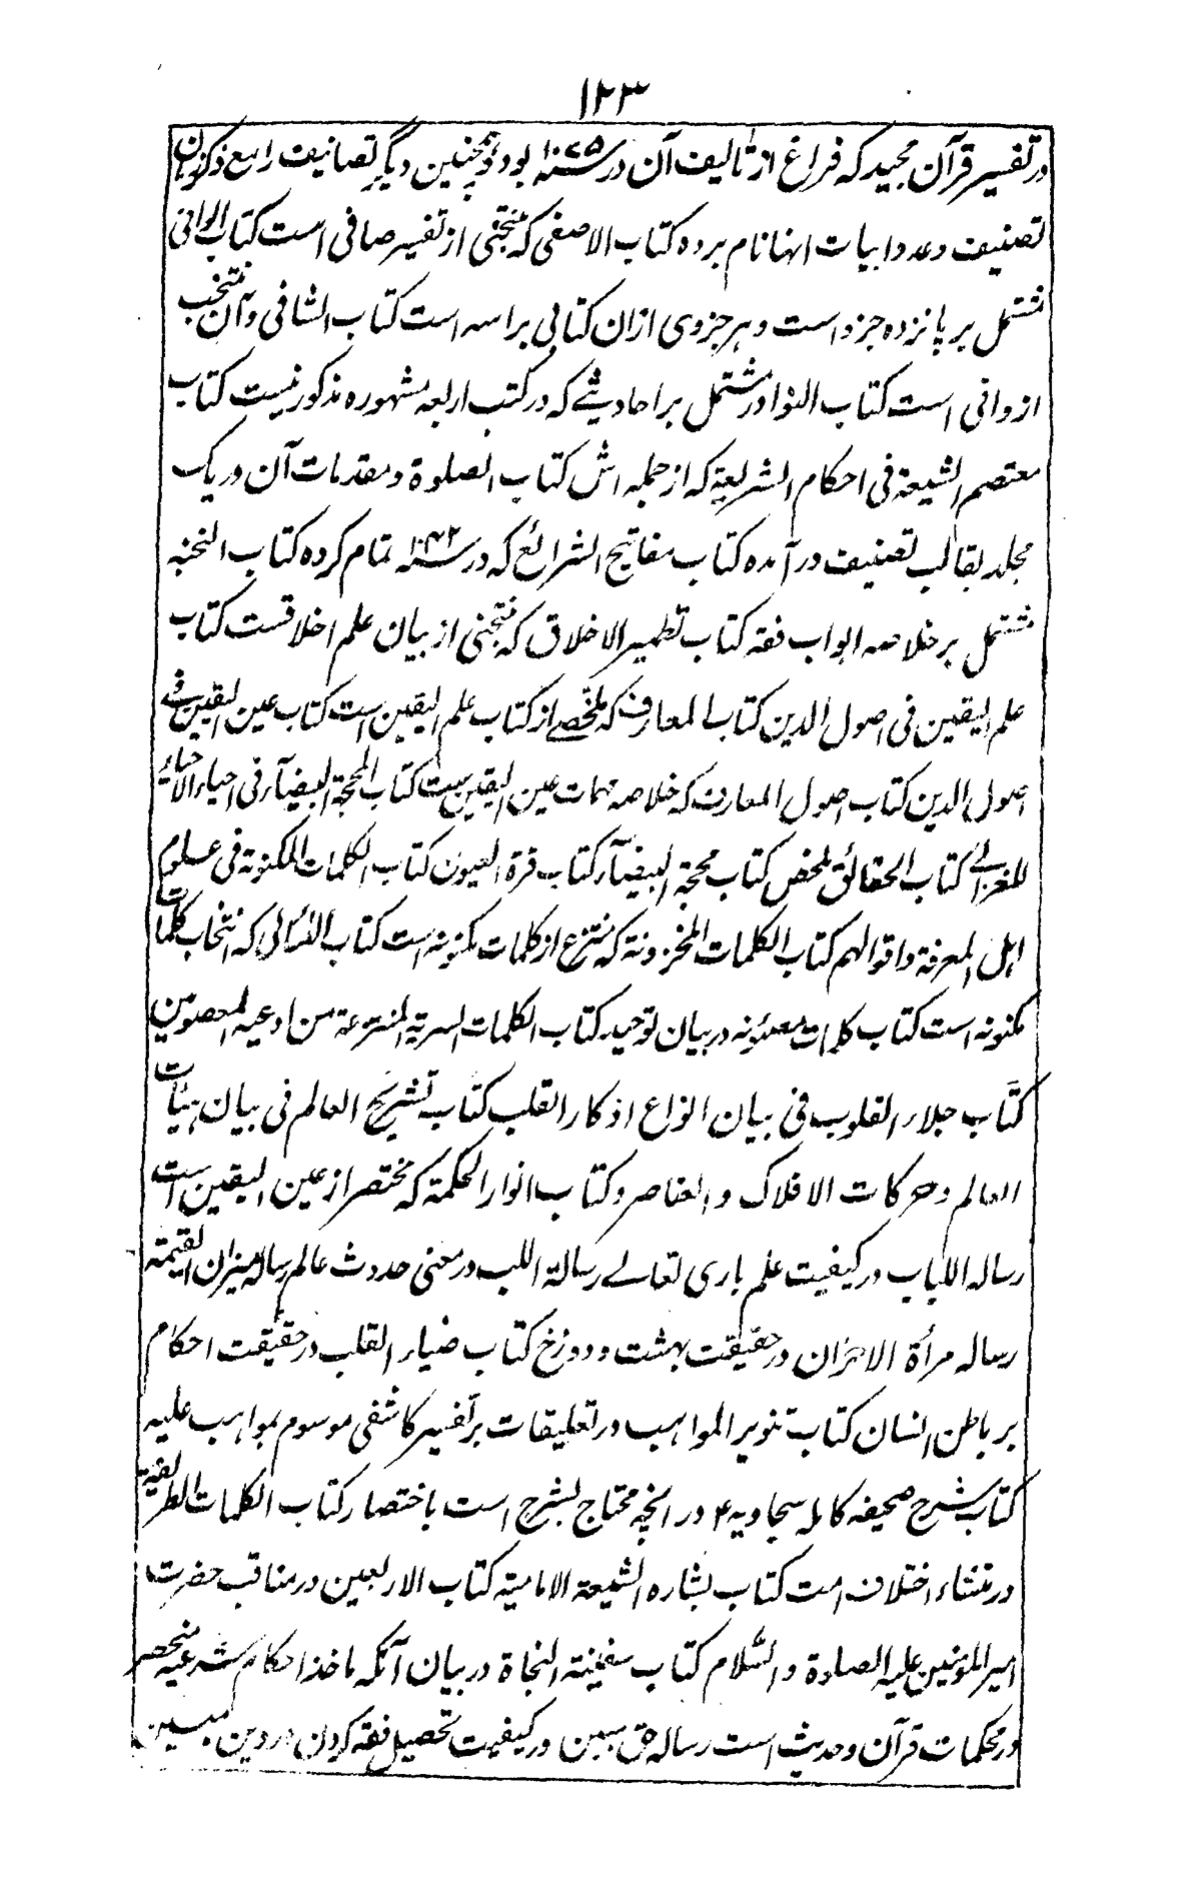 ۱۲۳
در تفسیر قرآن مجید که فراغ از تألیف آن در سنه ۱۰۷۵ بود و همچنین دیگر تصانیف را مع ذکر
تصنیف و عدد ابیات انها نام برده کتاب الاصفی که منتخبی از تفسیر صافی است کتاب الوافی
مشتمل بر پانزده جزو است و هر جزوی ازان کتابی براسه است کتاب الشافی و آن منتخب
از وافی است کتاب النوادر مشتمل بر احادیثے که در کتب اربعه مشهوره مذکور نیست کتاب
معتصم الشیعة فی احکام الشریعة که از جمله اش کتاب الصلوة و مقدمات آن در یک
مجلد بقالب تصنیف در آمده کتاب مفاتیح الشرائع که در سنه ۱۰۴۲ تمام کرده کتاب النخبه
مشتمل بر خلاصه ابواب فقه کتاب تطهیر الاخلاق که منتخبی از بیان علم اخلاقست کتاب
علم الیقین فی اصول الدین کتاب المعارف که ملخصے از کتاب علم الیقین است کتاب عین الیقین فی
اصول الدین کتاب اصول المعارف که خلاصه مهمات عین الیقین ست کتاب المحجة البیضآء فی احیاء الاحیاء
للغزالے کتاب الحقائق ملخص کتاب محجة البیضآء کتاب قرة العیون کتاب الکلمات المکنونة فی علوم
اهل المعرفة و اقوالهم کتاب الکلمات المخزونة که منتزع از کلمات مکنونه است کتاب اللئالی که انتخاب کلمات
مکنونه است کتاب کلمات مضنونه در بیان توحید کتاب الکلمات السریة المنتزعة من ادعیه المعصومین
کتاب جلاء القلوب فی بیان انواع اذکار القلب کتاب تشریح العالم فی بیان هیئات
العالم و حرکات الافلاک و العناصر و کتاب انوار الحکمة که مختصر از عین الیقین است
رساله اللباب در کیفیت علم باری تعالے رسالة اللب در معنی حدوث عالم رساله میزان القیمة
رساله مرأة الاخران در حقیقت بهشت و دوزخ کتاب ضیاء القلب در حقیقت احکام
بر باطن انسان کتاب تنویر المواهب در تعلیقات بر تفسیر کاشفی موسوم بمواهب علیه
کتاب شرح صحیفه کامله سجادیه ع در آنچه محتاج بشرح است باختصار کتاب الکلمات الطریفة
در منشاء اختلاف امت کتاب بشاره الشیعة الامامیة کتاب الاربعین در مناقب حضرت
امیر المؤمنین علیه الصلوة و السّلام کتاب سفینة النجاة در بیان آنکه ماخذ احکام شرعیه منحصر
در محکمات قرآن و حدیث است رساله حق مبین در کیفیت تحصیل فقه کردن در دین مبین